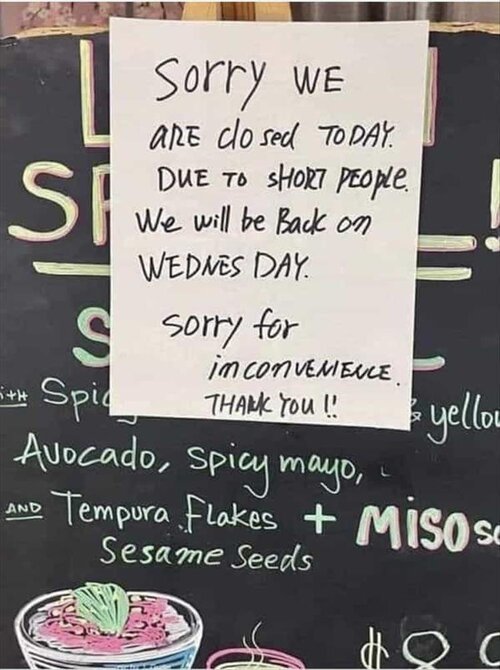 Sorry WE
ARE closed TODAY.
DUE TO SHORT PEOPLE.
We will be Back on
WEDNESDAY.
sorry for
inconVENIENCE.
THANK YOU !!
Avocado, spicy mayo,
AND Tempura Flakes + MISO
Sesame Seeds